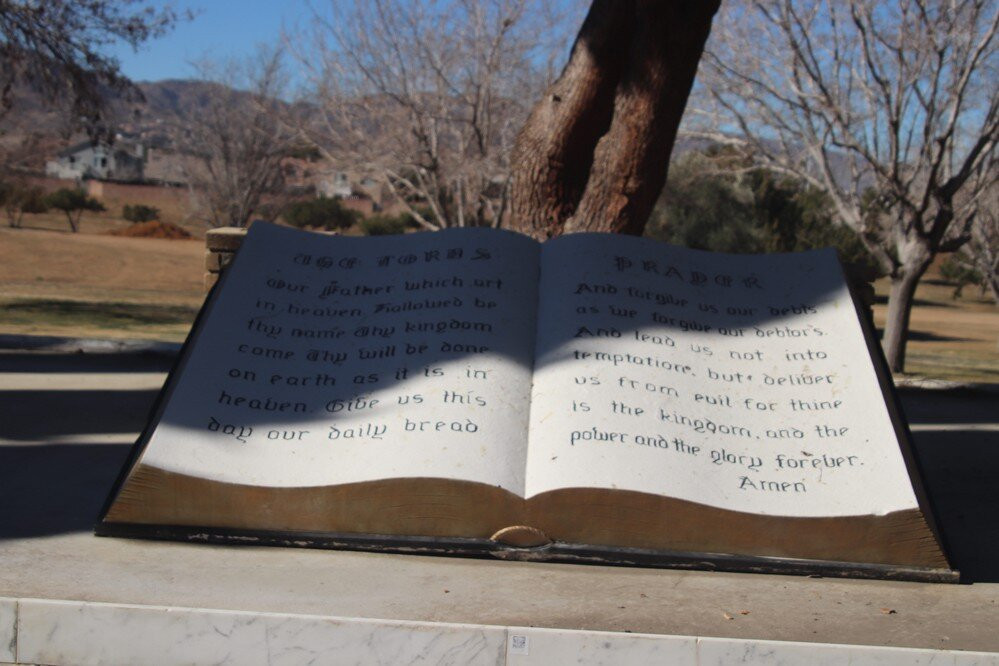 THE LORDS
Our Father which art
in heaven. Hallowed be
thy name Thy kingdom
come Thy will be done
on earth as it is in
heaven. Give us this
day our daily bread
PRAYER
And forgive us our debts
as we forgive our debtors.
And lead us not into
temptation. but. deliver
us from evil for thine
is the kingdom. and the
power and the glory forever.
Amen